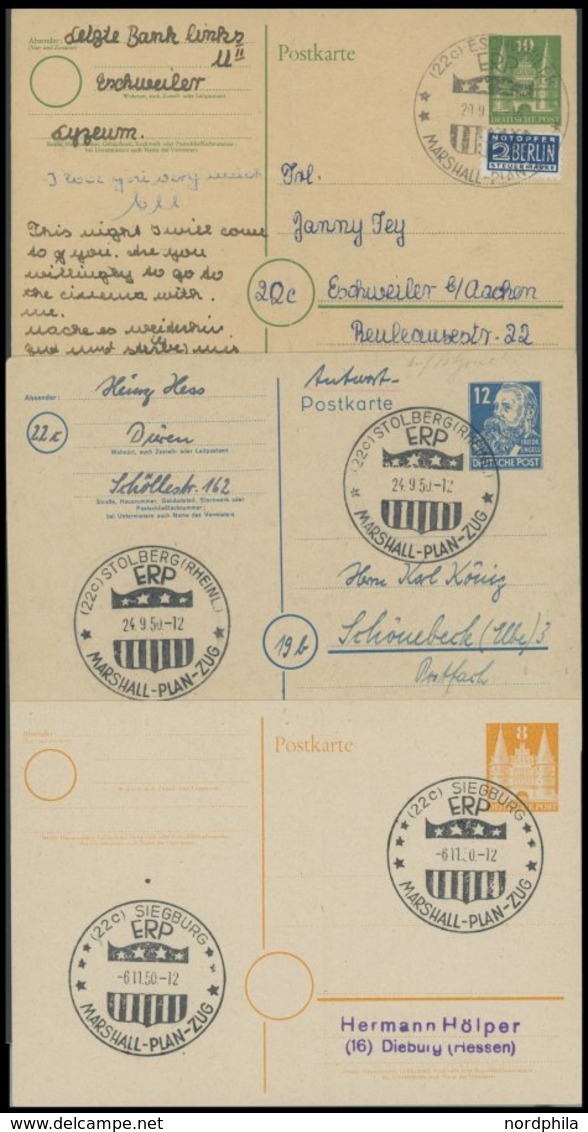 Absender:
Letzte Bank links
U II
Eschweiler
Wohnort, auch Zustell- oder Leitpostamt
Lyzeum.
I love you very much
Postkarte
10
DEUTSCHE POST
(22c)
ERP
MARSHALL-PLAN
NOTOPFER
2 BERLIN
STEUERMARKE
Frl.
Janny Jey
22c
Eschweiler b/Aachen
22
This night I will come
to you. Are you
willingly to go to
the cinema with
me.
mache es weiterhin
gut und
Absender:
Heinz Hess
22c
Düren
Wohnort, auch Zustell- oder Leitpostamt
Schöllestr. 162
Straße, Hausnummer, Gebäudeteil, Stockwerk oder
Postschließfachnummer;
bei Untermietern auch Name des Vermieters
Antwort-
Postkarte
12
FRIEDR. ENGELS
DEUTSCHE POST
(22c) STOLBERG (RHEINL.)
ERP
24.9.50.-12
MARSHALL-PLAN-ZUG
(22c) STOLBERG (RHEINL.)
ERP
24.9.50.-12
MARSHALL-PLAN-ZUG
Herrn Karl König
19b
Schönebeck (Elbe) 3
Postfach
Absender:
Postkarte
8
DEUTSCHE POST
(22c) SIEGBURG
ERP
-6.11.50.-12
MARSHALL-PLAN-ZUG
(22c) SIEGBURG
ERP
-6.11.50.-12
MARSHALL-PLAN-ZUG
Hermann Hölper
(16) Dieburg (Hessen)
www.nordphila.com